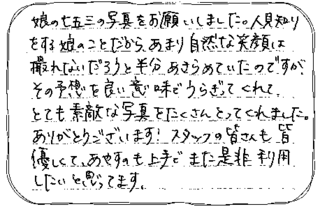 娘の七五三の写真をお願いしました。人見知り
をする娘のことだから、あまり自然な笑顔は
撮れないだろうと半分あきらめていたのですが、
その予想を良い意味でうらぎってくれて、
とても素敵な写真をたくさんとってくれました。
ありがとうございます！スタッフの皆さんも皆
優しくて、あやすのも上手で また是非利用
したいと思ってます。